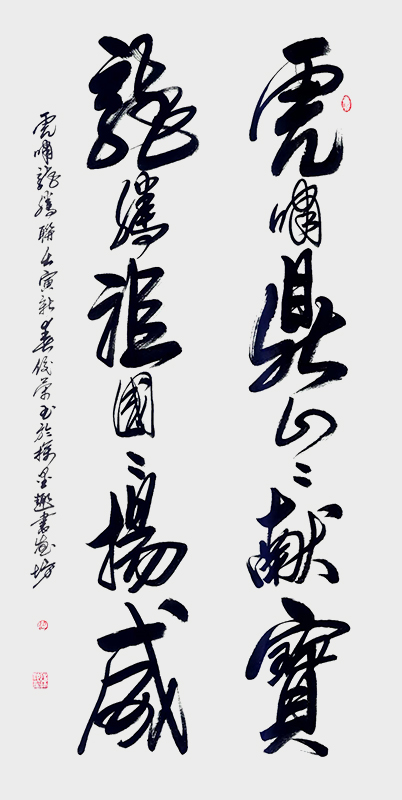 虎嘯鼎山山獻寶
龍騰祖國國揚威
虎嘯龍騰聯壬寅新春俊榮書於揚墨趣書畫坊